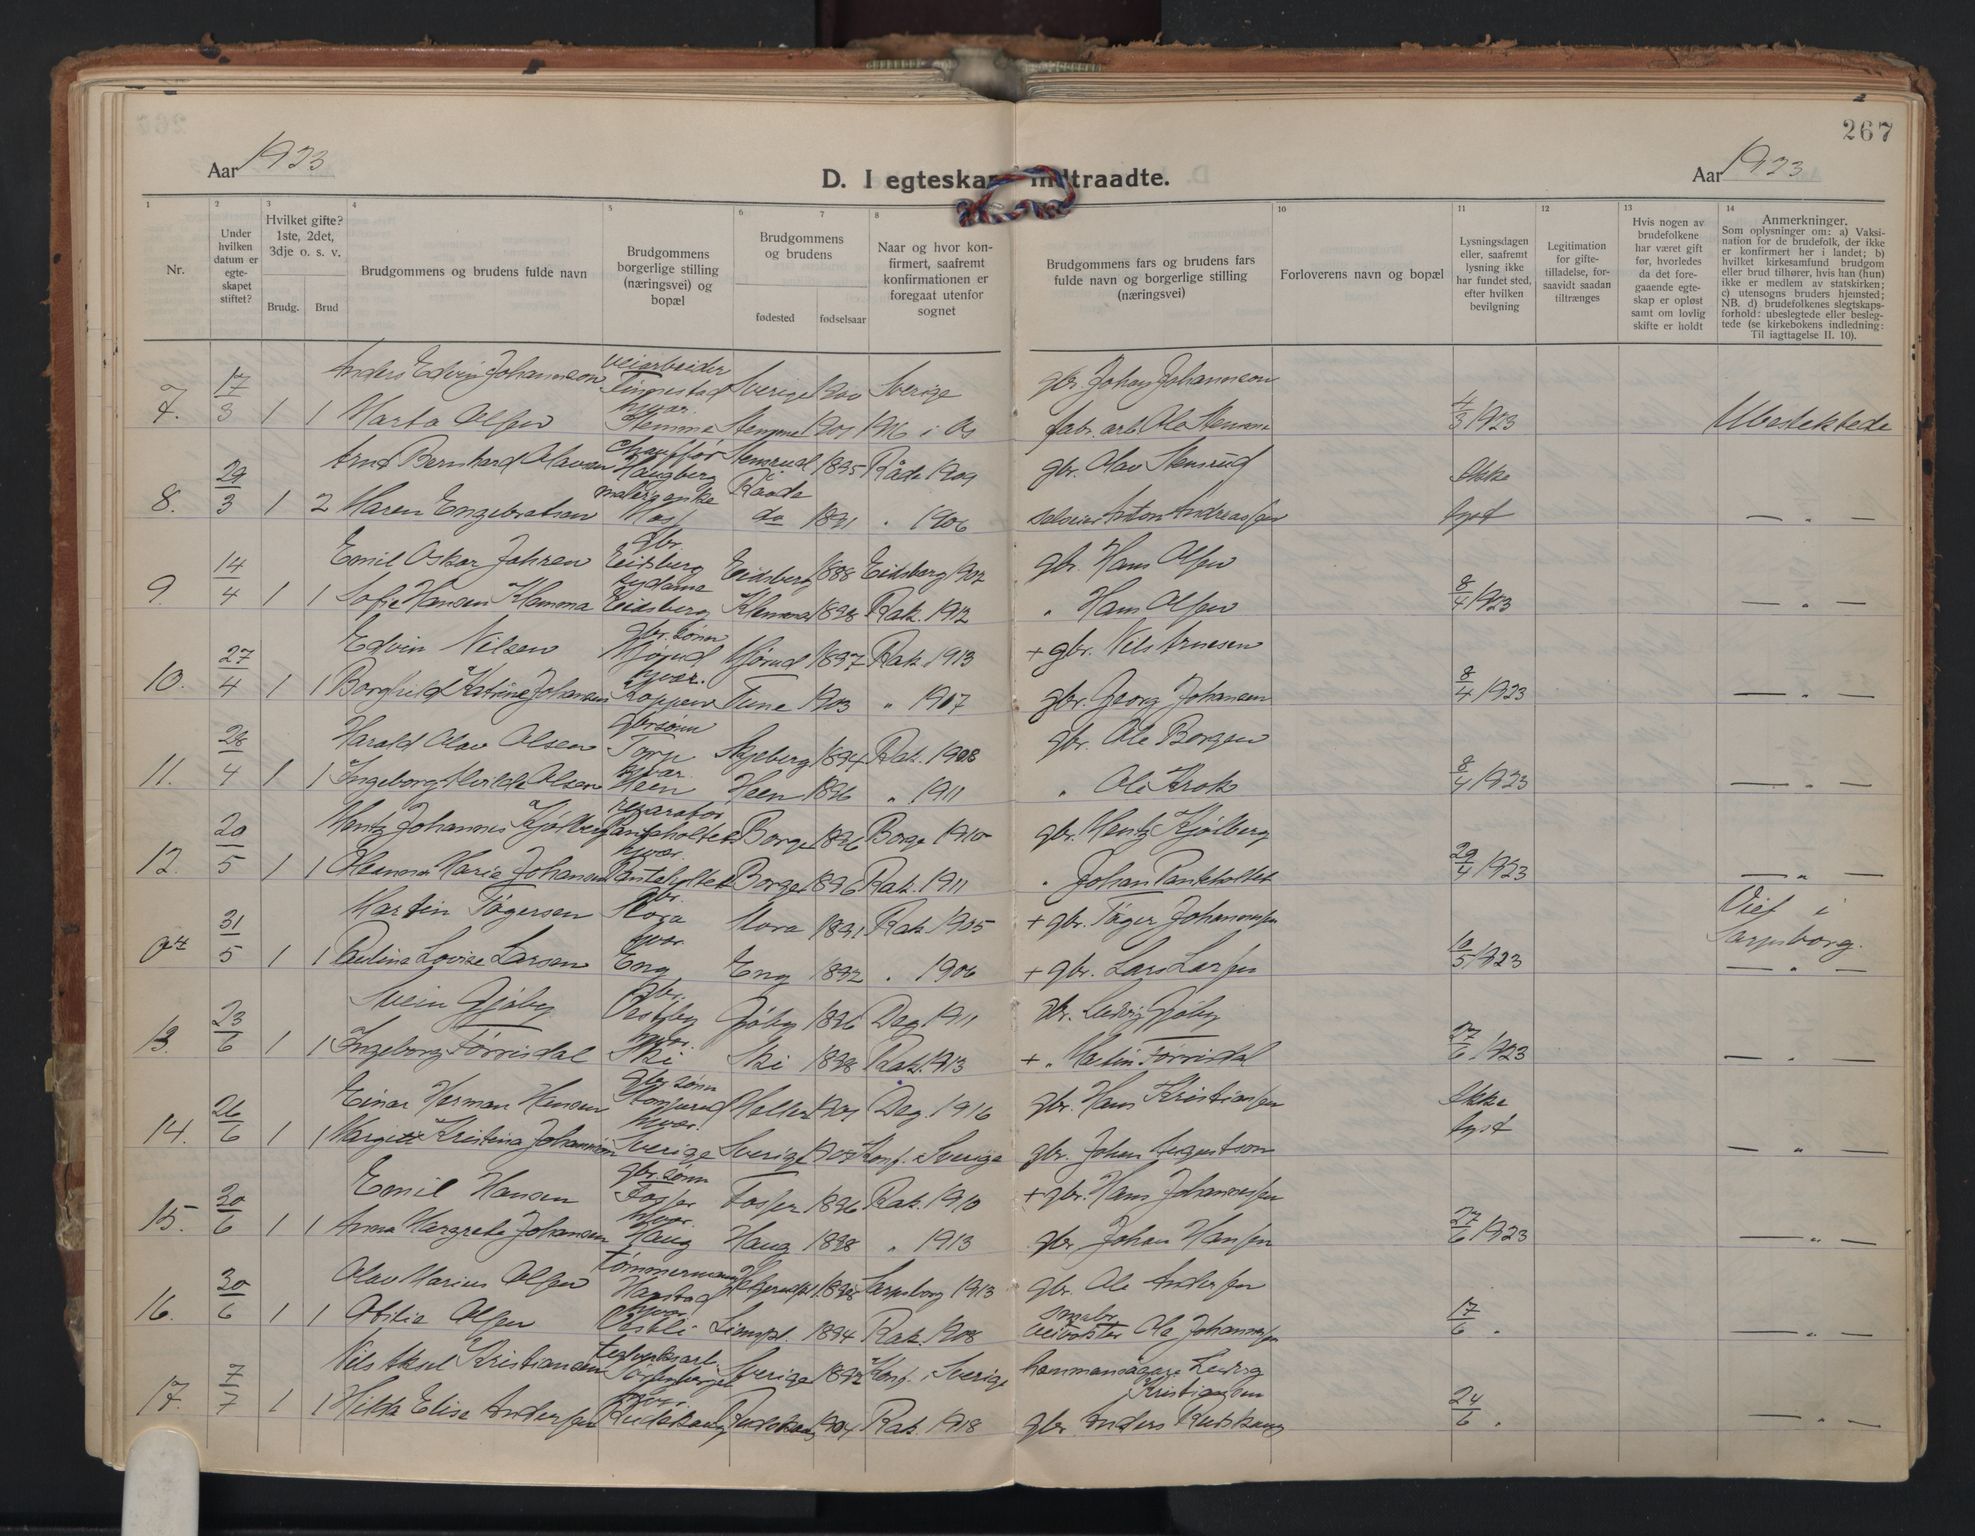 267
Aar 1923
D. I egteskap indtraadte.
Aar 1923
1 2 3 4 5 6 7 8 10 11 12 13 14
Nr.
Under hvilken datum er egteskapet stiftet?
Hvilket gifte? 1ste, 2det, 3dje o. s. v.
Brudg. Brud
Brudgommens og brudens fulde navn
Brudgommens borgerlige stilling (næringsvei) og bopæl
Brudgommens og brudens
fødested fødselsaar
Naar og hvor konfirmert, saafremt konfirmationen er foregaat utenfor sognet
Brudgommens fars og brudens fars fulde navn og borgerlige stilling (næringsvei)
Forloverens navn og bopæl
Lysningsdagen eller, saafremt lysning ikke har fundet sted, efter hvilken bevilgning
Legitimation for giftetilladelse, forsaavidt saadan tiltrænges
Hvis nogen av brudefolkene har været gift før, hvorledes da det foregaaende egteskap er opløst samt om lovlig skifte er holdt
Anmerkninger.
Som oplysninger om: a) Vaksination for de brudefolk, der ikke er konfirmert her i landet; b) hvilket kirkesamfund brudgom eller brud tilhører, hvis han (hun) ikke er medlem av statskirken; c) utensogns bruders hjemsted; NB. d) brudefolkenes slegtskapsforhold: ubeslegtede eller beslegtede (se kirkebokens indledning: Til iagttagelse II. 10).
Anders Edvin Johannson veiarbeider Sverige 1900 Sverige gbr. Johan Johannson
7. 17/3 1 1 Marta Olsen hvar. Stemme Stemme 1901 1916 i Os fabr. arb. Ole Stemme 4/3 1923 Ubeslektede
Arnt Bernhard Olavsen chauffør Haugberg Stensrud 1895 Råde 1909 gbr. Olav Stensrud Ikke
8. 29/3 1 2 Maren Engebretsen Moss Raade do 1891 " 1906 Anton Andreassen lyst — " —
Emil Oskar Jahren gbr. Eidsberg Eidsberg 1888 Eidsberg 1902 gbr. Hans Olsen
9. 14/4 1 1 Sofie Hansen Klemma sydame Eidsberg Klemma 1898 Rak. 1912 " Hans Olsen 8/4 1923 — " —
Edvin Nilsen gbr.sønn Mjørud Mjørud 1897 Rak. 1913 + gbr. Nils Arnesen
10. 27/4 1 1 Borghild Katrine Johansen hvar. Koppen Tune 1903 " 1917 gbr. Georg Johansen 8/4 1923 — " —
Harald Olav Olsen gbr sønn Torp Skjeberg 1894 Rak. 1908 gbr. Ole Borgen
11. 28/4 1 1 Ingeborg Alvilde Olsen hvar. Heen Heen 1896 " 1911 " Ole Krok 8/4 1923 — " —
Mentz Johannes Kjølberg reparatør Borge 1896 Borge 1910 gbr. Mentz Kjølberg
12. 20/5 1 1 Oleanna Marie Johansen hvar. Borge 1896 Rak. 1911 " Johan 29/4 1923 — " —
Martin Tøgersen gbr. Mora Mora 1891 Rak. 1905 + gbr. Tøger Johannessen Viet i Sarpsborg.
31/5 1 1 Paulina Lovise Larsen hvar. Eng Eng 1892 " 1906 + gbr. Lars Larsen 10/5 1923 — " —
Svein Gjøby gbr. Vestby Gjøby 1896 Dag. 1911 gbr. Ludvig Gjøby
13. 23/6 1 1 Ingeborg Tørrisdal hvar. Ski Ski 1898 Rak. 1913 + " Martin Tørrisdal 27/6 1923 — " —
Einar Herman Hansen gbr sønn Haller 1901 Dag. 1916 gbr. Hans Kristiansen Ikke
14. 26/6 1 1 Margit Kristina Johannson hvar. Sverige Sverige Konf. i Sverige gbr. Johan Augustson lyst — " —
Emil Hansen gbr. sønn Fosser Fosser 1896 Rak. 1910 + gbr. Hans Johannessen
15. 30/6 1 1 Anna Margrete Johansen hvar. Haug Haug 1898 " 1913 gbr. Johan Hansen 27/6 1923 — " —
Olav Marius Olsen tømmermann Harstad 1898 Sarpsborg 1913 gbr. Ole Andersen
16. 30/6 1 1 Otilie Olsen hvar. Vestli 1894 Rak. 1908 smabr. veivokter Ole Johannessen 17/6 " — " —
Nils Aksel Kristiansen teglverksarb. Sverige 1892 Konf. i Sverige Ludvig Kristiansen
17. 7/7 1 1 Hilda Elise Andersen hvar. Rudskaug Rudskaug 1904 Rak. 1918 gbr Anders Rudskaug 24/6 " — " —